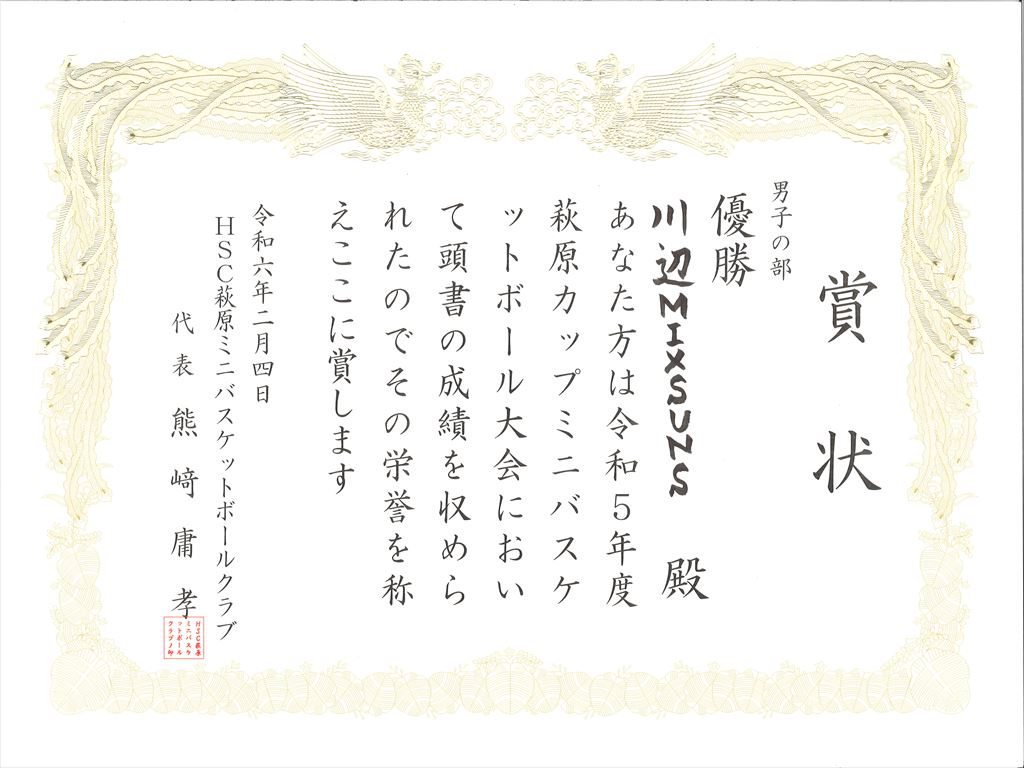 賞状
男子の部
優勝
川辺MIXSUNS 殿
あなた方は令和５年度
萩原カップミニバスケ
ットボール大会におい
て頭書の成績を収めら
れたのでその栄誉を称
えここに賞します
令和六年二月四日
HSC萩原ミニバスケットボールクラブ
代表 熊﨑庸孝
HSC萩原
ミニバスケ
ットボール
クラブノ印